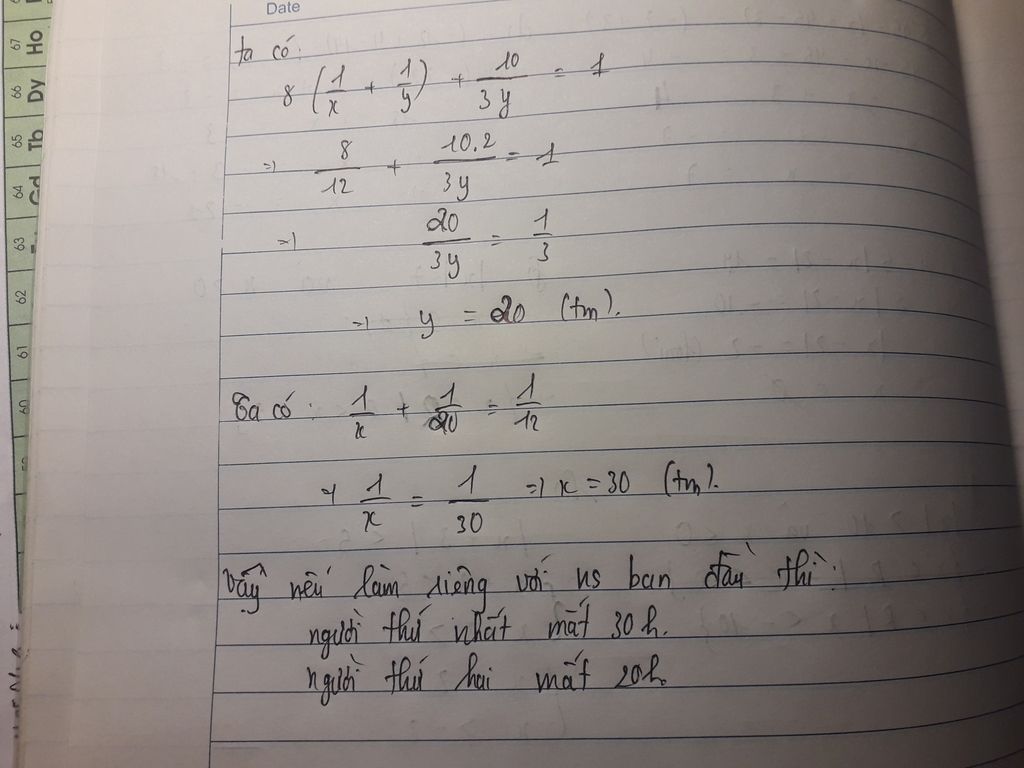 Date
67 Ho
66 Dy
65 Tb
64 Gd
63
62
61
60
ta có:
8 (1/x + 1/y) + 10/3y = 1
=> 8/12 + 10.2/3y = 1
=> 20/3y = 1/3
=> y = 20 (tm).
Ta có: 1/x + 1/20 = 1/12
=> 1/x = 1/30 => x = 30 (tm).
Vậy nếu làm riêng với ns ban đầu thì:
người thứ nhất mất 30h.
người thứ hai mất 20h.